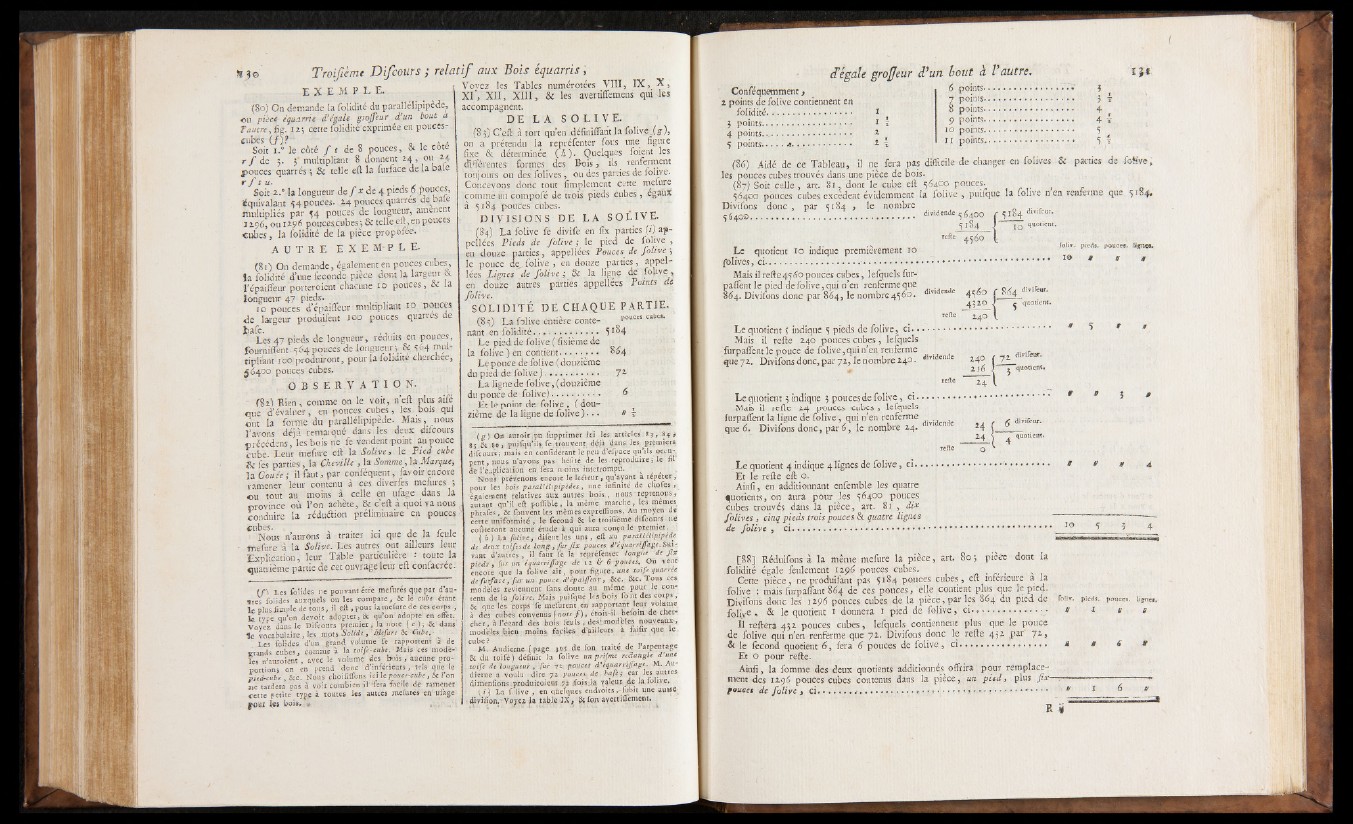 130 Troisième Discours ; relatif aux Bois équarris ,
EXEMPLE.
(80) On demande la solidité du parallélipipède,
ou pièce équarrie d'égale grosseur d'un bout à
l'autre, fig. 12 ; cette solidité exprimée en pouces-
cubes (f)?
Soit 1.° le côté f t de 8 pouces, & le côté
r f de 3. 3 multipliant 8 donnent 24, ou 24
pouces quarrés ; & telle est la surface de la base
r f t u.
Soit 2.° la longueur de f x de 4 pieds 6 pouces,
équivalant 54 pouces. 24 pouces quarrés de base
multipliés par 54 pouces de longueur, amènent
1296, ou 1296 pouces cubes ; & telle est, en pouces
cubes, la solidité de la pièce proposée.
AUTRE EXEMPLE.
(81) On demande, également en pouces cubes,
la solidité d'une seconde pièce dont la largeur &
l'épaisseur porteroient chacune 10 pouces, & la
longueur 47 pieds.
10 pouces d'épaisseur multipliant 10 pouces
de largeur produisent 100 pouces quarrés de
base.
Les 47 pieds de longueur, réduits en pouces,
fournissent 564 pouces de longueur ; & 564 mul-
tipliant 100 produiront, pour la solidité cherchée,
56400 pouces cubes.
OBSERVATION.
(82) Rien, comme on le voit, n'est plus aisé
que d'évaluer, en pouces cubes, les bois qui
ont la forme du parallélipipède. Mais, nous
l'avons déjà remarqué dans les deux discours
précédens, les bois ne se vendent point au pouce
cube. Leur mesure est la Solive, le Pied cube
& ses parties, la Cheville, la Somme, la Marque,
la Gouée ; il faut, par conséquent, savoir encore
ramener leur contenu à ces diverses mesures ;
ou tout au moins à celle en usage dans la
province où l'on achète, & c'est à quoi va nous
conduire la réduction préliminaire en pouces
cubes.
Nous n'aurons à traiter ici que de la seule
mesure à la Solive. Les autres ont ailleurs leur
Explication, leur Table particulière : toute la
quatrième partie de cet ouvrage leur est consacrée.
(f) Les solides ne pouvant être mesurés que par d'au-
tres solides auxquels on les compare, & le cube étant
le plus simple de tous, il est, pour la mesure de ces corps,
le type qu'on devoit adopter, & qu'on adopte en effet.
Voyez dans le Discours premier, la note ( c ) ; & dans
le vocabulaire, les mots Solide, Mesure & Cube.
Les solides d'un grand volume se rapportent à de
grands cubes, comme à la toise-cube. Mais ces modè-
les n'auroient, avec le volume des bois, aucune pro-
portion ; on en prend donc d'inférieurs, tels que le
pied-cube, &c. Nous choisissons ici le pouce-cube, & l'on
ne tardera pas à voir combien il sera facile de ramener
cette petite type à toutes les autres mesures en usage
pour les bois.
Voyez les Tables numérotées VIII, IX, X,
XI, XII, XIII, & les avertissemens qui les
accompagnent.
DE LA SOLIVE.
(83) C'est à tort qu'en définissant la solive (g),
on a prétendu la représenter sous une figure
fixe & déterminée (h). Quelques soient les
différentes formes des Bois, ils renferment
toujours ou des solives, ou des parties de solive.
Concevons donc tout simplement cette mesure
comme un composé de trois pieds cubes, égaux
à 5184 pouces cubes.
DIVISIONS DE LA SOLIVE.
(84) La solive se divise en six parties (i) ap-
pellées Pieds de solive ; le pied de solive,
en douze parties, appellées Pouces de solive ;
le pouce de solive, en douze parties, appel-
lées Lignes de solive ; & la ligne de solive,
en douze autres parties appellées Points de
solive.
SOLIDITÉ DE CHAQUE PARTIE.
pouces cubes.
(85) La solive entière conte-
nant en solidité............ 5184
Le pied de solive ( sixième de
la solive ) en contient........ 864
Le pouce de solive ( douzième
du pied de solive ).......... 72
La ligne de solive, ( douzième
du pouce de solive).......... 6
Et le point de solive, ( dou-
zième de la ligne de solive)... " 1/2
(g) On auroit pu supprimer ici les articles 83, 84,
85 & 86, puisqu'ils se trouvent déjà dans les premiers
discours ; mais en considérant le peu d'espace qu'ils occu-
pent, nous n'avons pas hésité de les reproduire ; le fil
de l'explication en sera moins interrompu.
Nous prévenons encore le lecteur, qu'ayant à répéter,
pour les bois parallélipipèdes, une infinité de choses,
également relatives aux autres bois, nous reprenons,
autant qu'il est possible, la même marche, les mêmes
phrases, & souvent les mêmes expressions. Au moyen de
cette uniformité, le second & le troisième discours ne
coûteront aucune étude à qui aura conçu le premier.
( h ) La solive, disent les uns, est un parallélipipède
de deux toises de long, sur six pouces d'équarrissage. Sui-
vant d'autres, il faut se le représenter longue de six
pieds, sur un équarrissage de 12 & 6 pouces. On veut
encore que la solive ait, pour figure, une toise quarrée
de surface, sur un pouce d'épaisseur, &c. &c. Tous ces
modèles reviennent sans doute au même pour le con-
tenu de la solive. Mais puisque les bois sont des corps,
& que les corps se mesurent en rapportant leur volume
à des cubes convenus (note f), étoit-il besoin de cher-
cher, à l'égard des bois seuls, des modèles nouveaux,
modèles bien moins faciles d'ailleurs à saisir que le
cube ?
M. Audierne (page 401 de son traité de l'arpentage
& du toisé) définit la solive un prisme rectangle d'une
toise de longueur, sur 72 pouces d'équarrissage. M. Au-
dierne a voulu dire 72 pouces de base ; car les autres
dimensions produiroient 72 fois la valeur de la solive.
(i) La solive, en quelques endroits, subit une autre
division. Voyez la table IX, & son avertissement.
d'égale grosseur d'un bout à l'autre. 131
Conséquemment,
2 points de solive contiennent en
solidité................ 1
3 points................ 1 1/2
4 points................ 2
5 points................ 2 1/2
6 points................ 3
7 points................ 3 1/2
8 points................ 4
9 points................ 4 1/2
10 points................ 5
11 points................ 5 1/2
(86) Aidé de ce Tableau, il ne sera pas difficile de changer en solives & parties de solive,
les pouces cubes trouvés dans une pièce de bois.
(87) Soit celle, art. 81, dont le cube est 56400 pouces.
56400 pouces cubes excèdent évidemment la solive, puisque la solive n'en renferme que 5184.
Divisons donc, par 5184, le nombre
56400................ dividende 56400 { 5184 diviseur.
5184 10 quotient.
reste 4560
soliv. pieds. pouces. lignes.
Le quotient 10 indique premièrement 10
solives, ci................ 10 " " "
Mais il reste 4560 pouces cubes, lesquels sur-
passent le pied de solive, qui n'en renferme que
864. Divisons donc par 864, le nombre 4560. dividende 4560 { 864 diviseur.
4320 5 quotient.
reste 240
Le quotient 5 indique 5 pieds de solive, ci................ " 5 " "
Mais il reste 240 pouces cubes, lesquels
surpassent le pouce de solive, qui n'en renferme
que 72. Divisons donc, par 72, le nombre 240. dividende 240 { 72 diviseur.
216 3 quotient.
reste 24
Le quotient 3 indique 3 pouces de solive, ci................ " " 3 "
Mais il reste 24 pouces cubes, lesquels
surpassent la ligne de solive, qui n'en renferme
que 6. Divisons donc, par 6, le nombre 24. dividende 24 { 6 diviseur.
24 4 quotient.
reste 0
Le quotient 4 indique 4 lignes de solive, ci................ " " " 4
Et le reste est 0.
Ainsi, en additionnant ensemble les quatre
quotients, on aura pour les 56400 pouces
cubes trouvés dans la pièce, art. 81, dix
solives, cinq pieds trois pouces & quatre lignes
de solive, ci................ 10 5 3 4
[88] Réduisons à la même mesure la pièce, art. 80 ; pièce dont la
solidité égale seulement 1296 pouces cubes.
Cette pièce, ne produisant pas 5184 pouces cubes, est inférieure à la
solive : mais surpassant 864 de ces pouces, elle contient plus que le pied.
Divisons donc les 1296 pouces cubes de la pièce, par les 864 du pied de soliv. pieds. pouces. lignes.
solive, & le quotient 1 donnera 1 pied de solive, ci................ " 1 " "
Il restera 432 pouces cubes, lesquels contiennent plus que le pouce
de solive qui n'en renferme que 72. Divisons donc le reste 432 par 72,
& le second quotient 6, sera 6 pouces de solive, ci................ " " 6 "
Et 0 pour reste.
Ainsi, la somme des deux quotients additionnés offrira pour remplace-
ment des 1296 pouces cubes contenus dans la pièce, un pied, plus six
pouces de solive, ci................ " 1 6 "
R